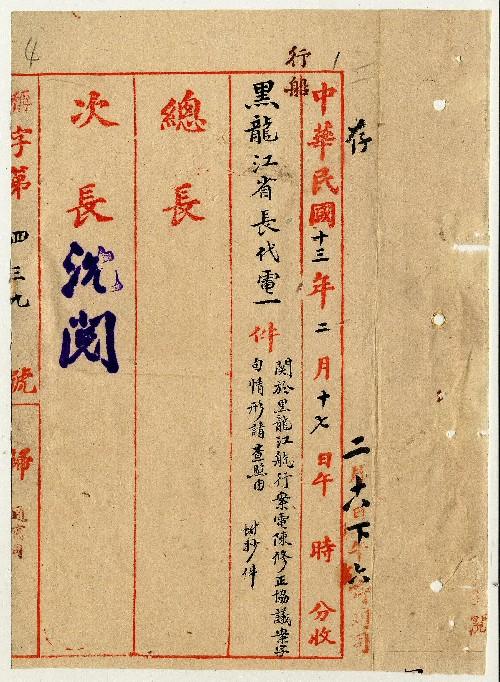 存
二十八下六
行船
中華民國十三年二月十七日午 時 分收
黑龍江省長代電一件
関於黑龍江航行案電陳修正協議案字
句情形請查照由
附抄件
總長
次長
沈閱
字第四三九號
歸
4